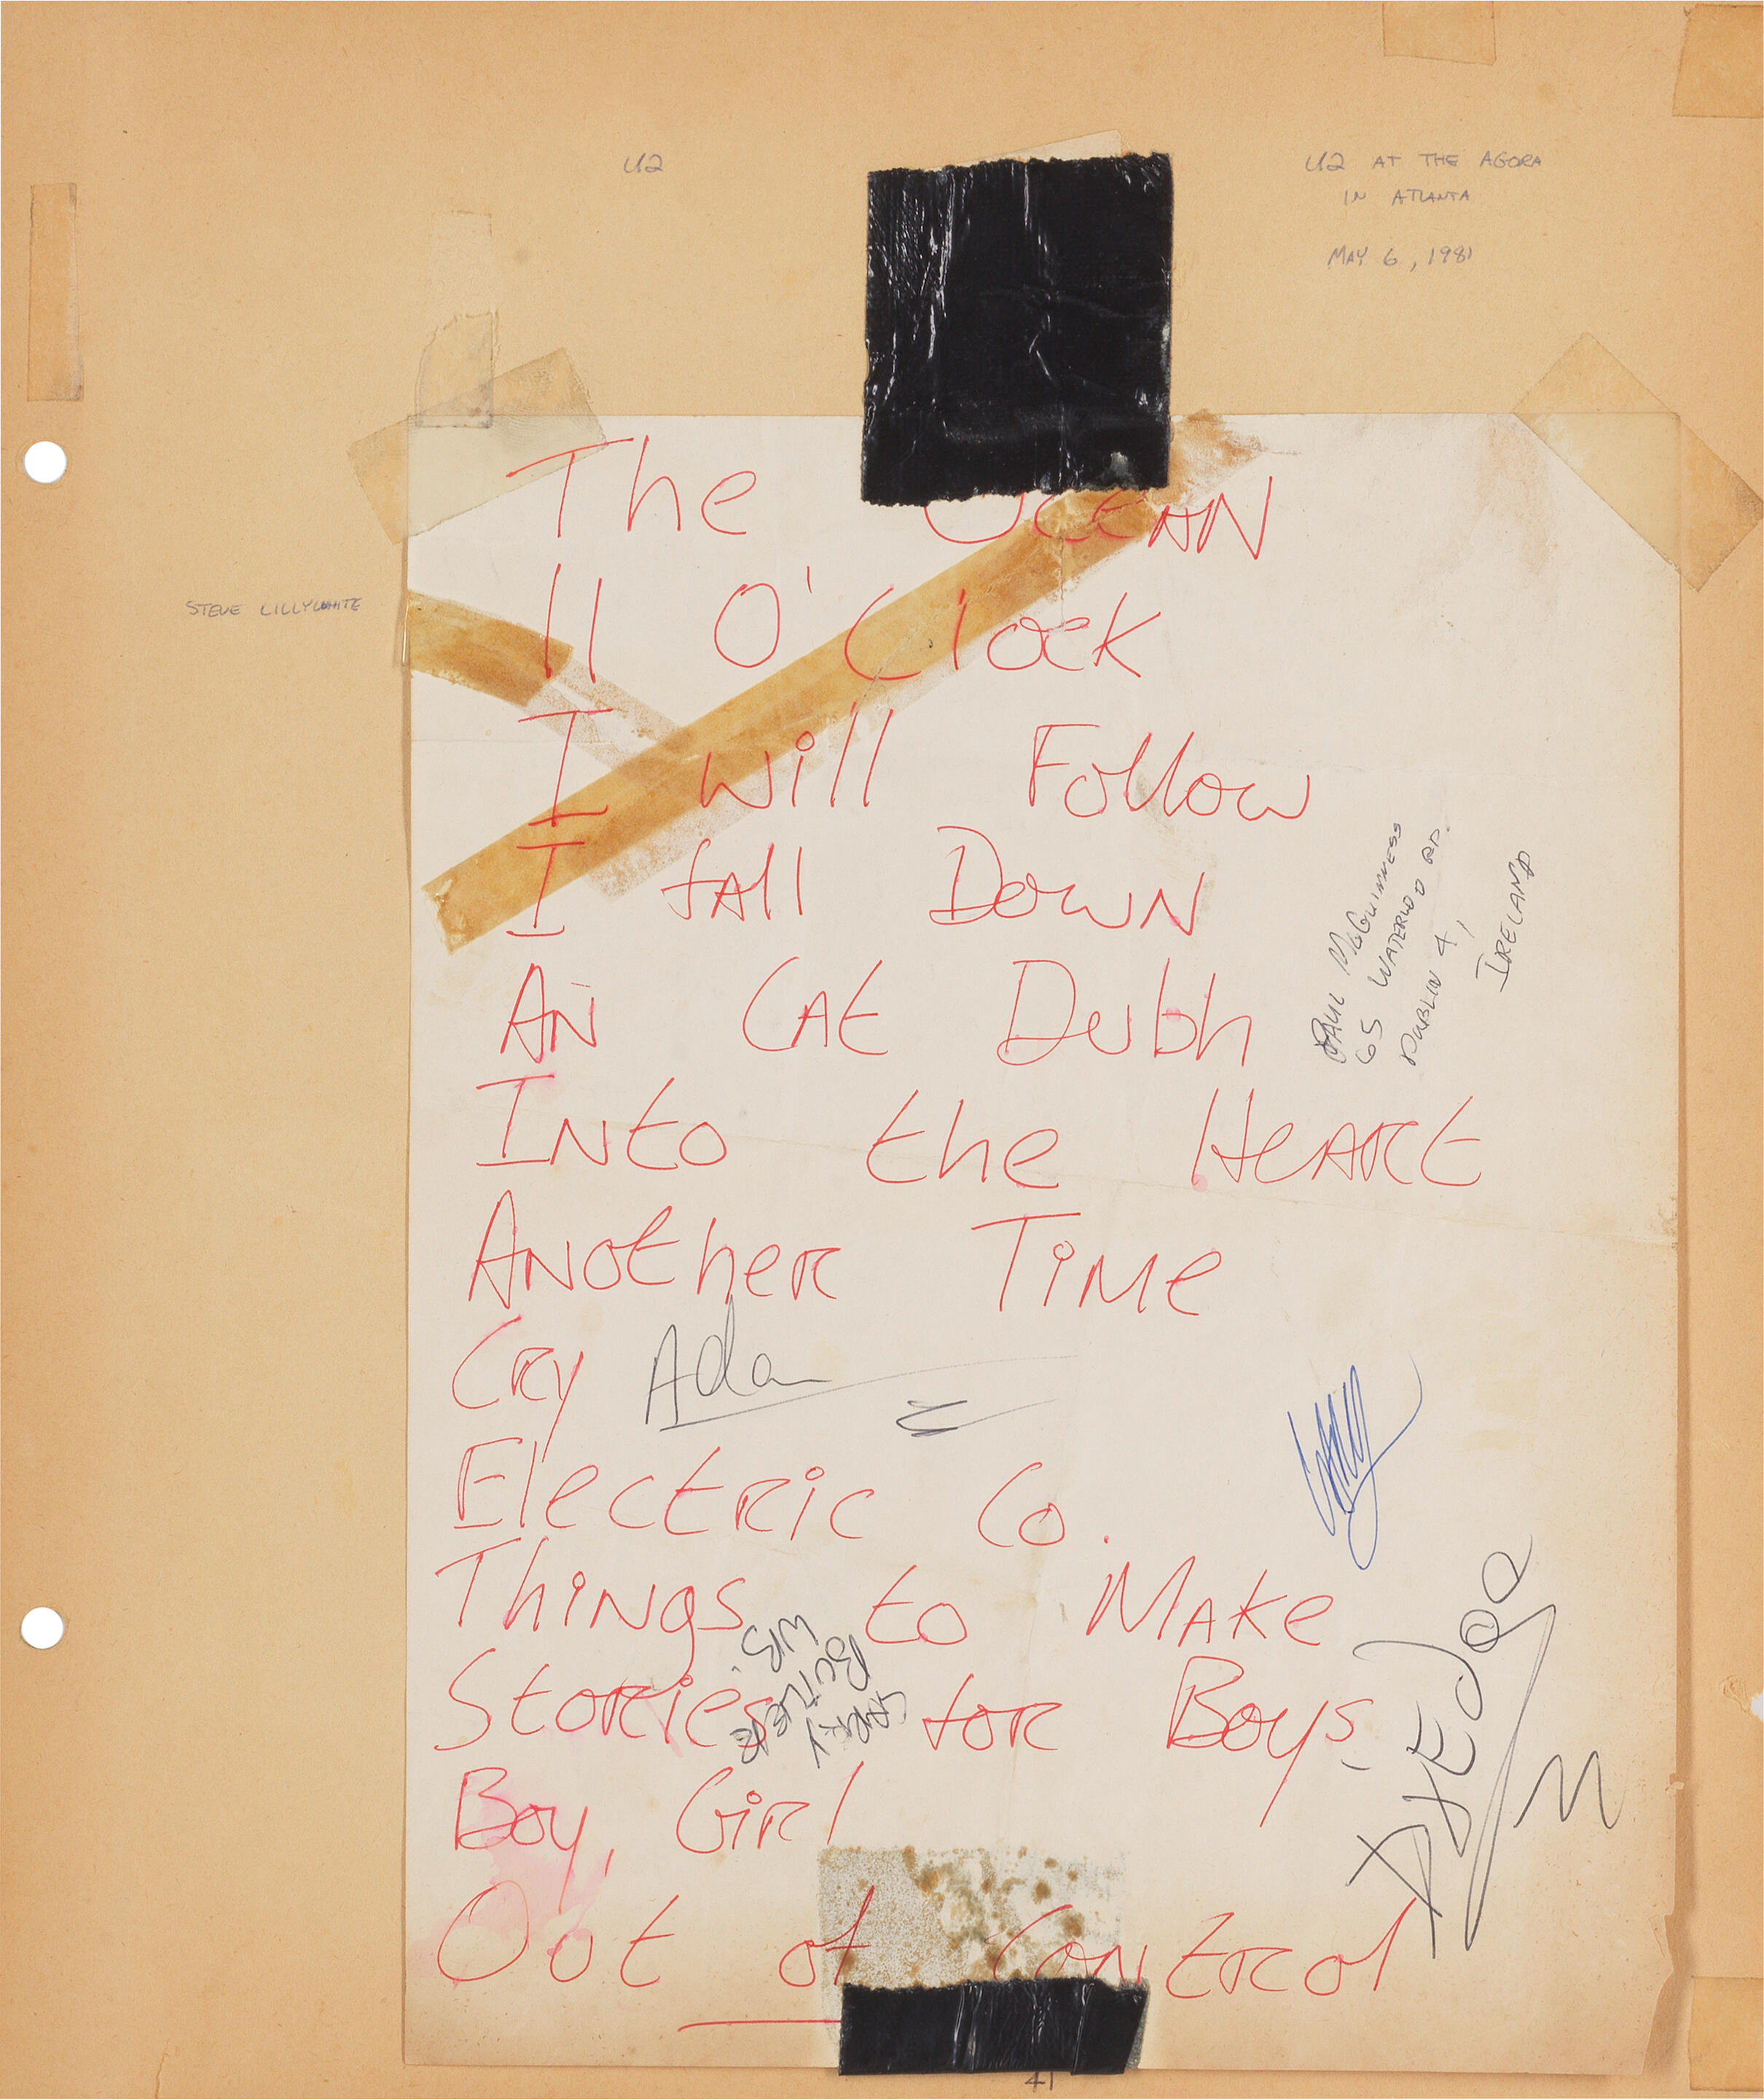 U2
U2 AT THE AGORA
IN ATLANTA
MAY 6, 1981
STEVE LILLYWHITE
The OCEAN
11 O'Clock
I will Follow
I fAll DowN
AN CAt Dubh
INto the HeARt
ANotheR TiMe
CRy Adam
ElectRic Co.
ThiNgs to MAke
StoRies foR Boys
Boy, GiRl
Out of CoNtRol
PAUL McGUINNESS
65 WATERLOO RD.
DUBLIN 4,
IRELAND
LARRY
BUTLER
WRS.
THEDGE
41